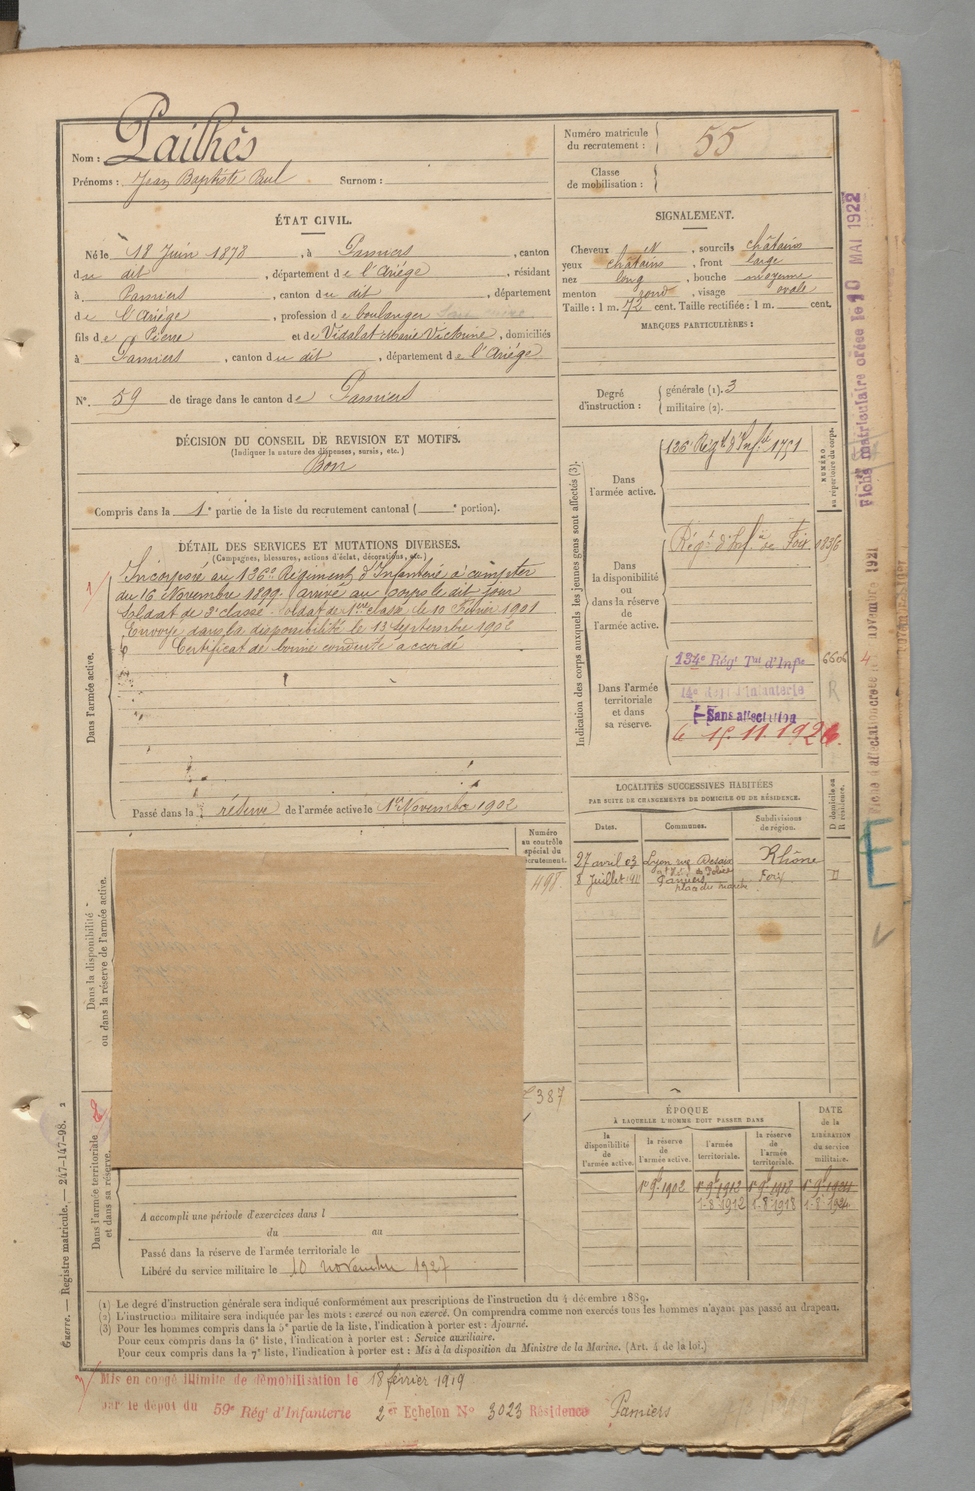 Nom : Pailhès
Prénoms : Jean Baptiste Paul Surnom :
Numéro matricule du recrutement : 55
Classe de mobilisation :
ÉTAT CIVIL.
Né le 18 Juin 1878, à Pamiers, canton
du dit, département de l'Ariège, résidant
à Pamiers, canton du dit, département
de l'Ariège, profession de boulanger
fils de Pierre et de Vidalat Marie Victorine, domiciliés
à Pamiers, canton du dit, département de l'Ariège
N° 59 de tirage dans le canton de Pamiers
SIGNALEMENT.
Cheveux N, sourcils châtains
yeux châtains, front large
nez long, bouche moyenne
menton rond, visage ovale
Taille : 1 m. 72 cent. Taille rectifiée : 1 m. cent.
MARQUES PARTICULIÈRES :
Degré d'instruction : générale (1). 3
militaire (2).
DÉCISION DU CONSEIL DE REVISION ET MOTIFS.
(Indiquer la nature des dispenses, sursis, etc.)
Bon
Compris dans la 1e partie de la liste du recrutement cantonal ( e portion).
DÉTAIL DES SERVICES ET MUTATIONS DIVERSES.
(Campagnes, blessures, actions d'éclat, décorations, etc.)
Dans l'armée active.
Incorporé au 136e Régiment d'Infanterie à compter
du 16 Novembre 1899. arrivé au corps le dit jour
Soldat de 2e classe. Soldat de 1ère classe le 10 Février 1901
Envoyé dans la disponibilité le 13 Septembre 1902
Certificat de bonne conduite accordé
Passé dans la réserve de l'armée active le 1er Novembre 1902
Indication des corps auxquels les jeunes gens sont affectés (3).
NUMÉRO au répertoire du corps.
Dans l'armée active.
136e Régt d'Inf. 1751
Dans la disponibilité ou dans la réserve de l'armée active.
Régt d'Inf. de Foix
Dans l'armée territoriale et dans sa réserve.
134e Régt Tal d'Infie 6606
14e Régt d'Infanterie R
Sans affectation
le 15.11.1926.
LOCALITÉS SUCCESSIVES HABITÉES
PAR SUITE DE CHANGEMENTS DE DOMICILE OU DE RÉSIDENCE.
D domicile ou R résidence.
Dates. Communes. Subdivisions de région.
27 avril 03 Lyon rue Desaix Rhône
8 Juillet Pamiers place du marché Foix D
Numéro au contrôle spécial du recrutement.
498.
387
Dans la disponibilité ou dans la réserve de l'armée active.
Dans l'armée territoriale et dans sa réserve.
ÉPOQUE
À LAQUELLE L'HOMME DOIT PASSER DANS
DATE de la LIBÉRATION du service militaire.
la disponibilité de l'armée active.
la réserve de l'armée active.
l'armée territoriale.
la réserve de l'armée territoriale.
1er 9bre 1902 1er 9bre 1912 1er 9bre 1918 1er 9bre 1924
1-8-1912 1-8-1918 1-8-1924
A accompli une période d'exercices dans l
du au
Passé dans la réserve de l'armée territoriale le
Libéré du service militaire le 10 novembre 1927
(1) Le degré d'instruction générale sera indiqué conformément aux prescriptions de l'instruction du 4 décembre 1889.
(2) L'instruction militaire sera indiquée par les mots : exercé ou non exercé. On comprendra comme non exercés tous les hommes n'ayant pas passé au drapeau.
(3) Pour les hommes compris dans la 5e partie de la liste, l'indication à porter est : Ajourné.
Pour ceux compris dans la 6e liste, l'indication à porter est : Service auxiliaire.
Pour ceux compris dans la 7e liste, l'indication à porter est : Mis à la disposition du Ministre de la Marine. (Art. 4 de la loi.)
Mis en congé illimité de démobilisation le 18 février 1919
par le dépôt du 59e Régt d'Infanterie 2er Echelon No 3023 Résidence Pamiers
Guerre. — Registre matricule. — 247-147-98.
Fiche matriculaire créée le 10 MAI 1922